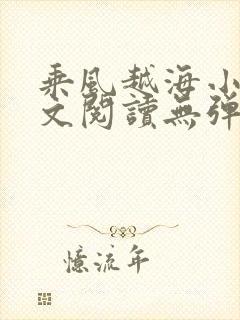 乘風越海小
文閱讀無彈
憶流年